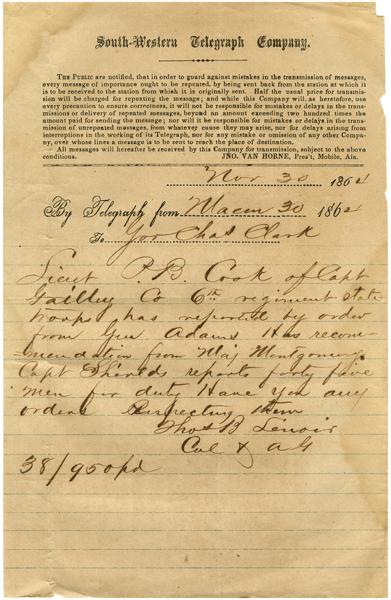 South-Western Telegraph Company.
THE PUBLIC are notified, that in order to guard against mistakes in the transmission of messages,
every message of importance ought to be repeated, by being sent back from the station at which it
is to be received to the station from which it is originally sent. Half the usual price for transmis-
sion will be charged for repeating the message; and while this Company will, as heretofore, use
every precaution to ensure correctness, it will not be responsible for mistakes or delays in the trans-
missions or delivery of repeated messages, beyond an amount exceeding two hundred times the
amount paid for sending the message; nor will it be responsible for mistakes or delays in the trans-
mission of unrepeated messages, from whatever cause they may arise, nor for delays arising from
interruptions in the working of its Telegraph, nor for any mistake or omission of any other Compa-
ny, over whose lines a message is to be sent to reach the place of destination.
All messages will hereafter be received by this Company for transmission, subject to the above
conditions. JNO. VAN HORNE, Pres't, Mobile, Ala.
Nov 30 1862
By Telegraph from Macon 30 1862
To Gov Chas Clark
Lieut P. B. Cook of Capt
Co 6th regiment State
troops has reported by order
from Gen Adams Has recom-
mendation from Maj Montgomery
Capt reports forty five
men for duty Have you any
orders Respecting them
Thos B Lenoir
Col & AG
38/950pd